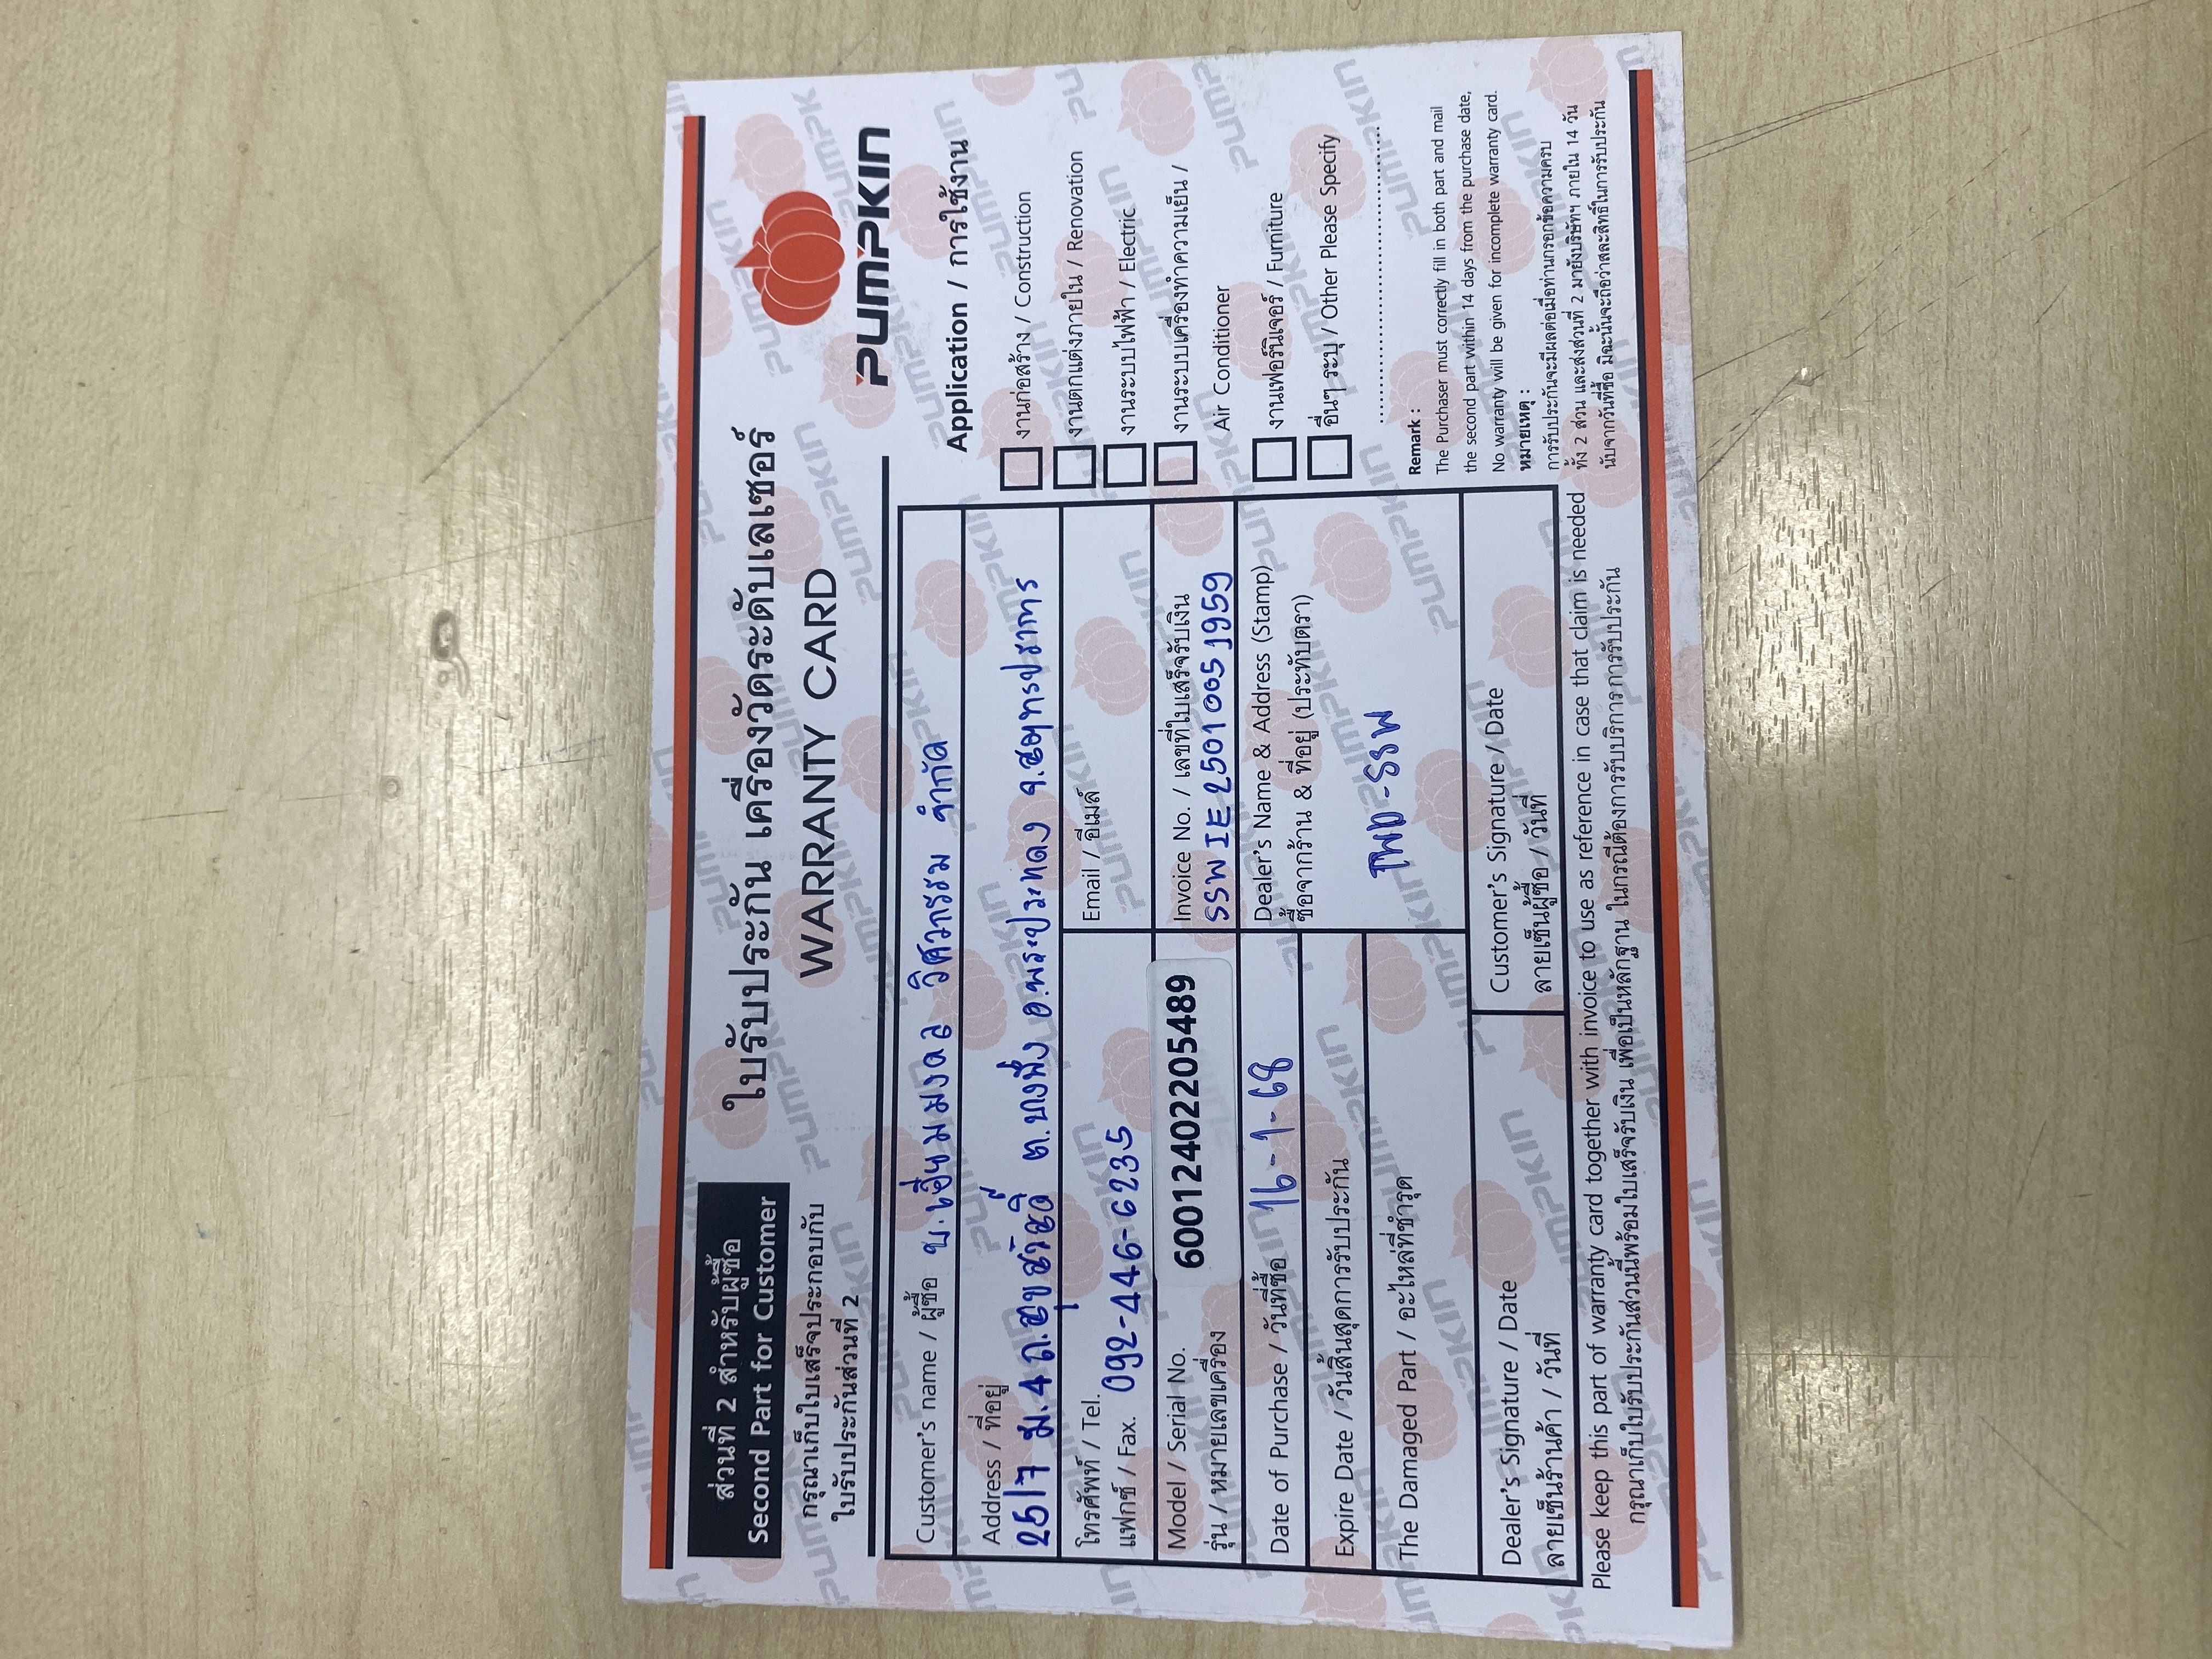 ส่วนที่ 2 สำหรับผู้ซื้อ
Second Part for Customer
กรุณาเก็บใบเสร็จประกอบกับ
ใบรับประกันส่วนที่ 2
ใบรับประกัน เครื่องวัดระดับเลเซอร์
WARRANTY CARD
PUMPKIN
Customer's name / ผู้ซื้อ บ.เอี่ยมมงคล วิศวกรรม จำกัด
Address / ที่อยู่
25/7 ม.4 ถ.สุขสวัสดิ์ ต.บางพึ่ง อ.พระประแดง จ.สมุทรปราการ
โทรศัพท์ / Tel.
แฟกซ์ / Fax. 092-446-6235
Email / อีเมล์
Model / Serial No.
รุ่น / หมายเลขเครื่อง
6001240220548​9
Invoice No. / เลขที่ใบเสร็จรับเงิน
SSWIE25010051959
Date of Purchase / วันที่ซื้อ 16-1-68
Dealer's Name & Address (Stamp)
ซื้อจากร้าน & ที่อยู่ (ประทับตรา)
TWD-SSW
Expire Date / วันสิ้นสุดการรับประกัน
The Damaged Part / อะไหล่ที่ชำรุด
Dealer's Signature / Date
ลายเซ็นร้านค้า / วันที่
Customer's Signature / Date
ลายเซ็นผู้ซื้อ / วันที่
Application / การใช้งาน
งานก่อสร้าง / Construction
งานตกแต่งภายใน / Renovation
งานระบบไฟฟ้า / Electric
งานระบบเครื่องทำความเย็น /
Air Conditioner
งานเฟอร์นิเจอร์ / Furniture
อื่นๆ ระบุ / Other Please Specify
Remark :
The Purchaser must correctly fill in both part and mail
the second part within 14 days from the purchase date,
No warranty will be given for incomplete warranty card.
หมายเหตุ :
การรับประกันจะมีผลต่อเมื่อท่านกรอกข้อความครบ
ทั้ง 2 ส่วน และส่งส่วนที่ 2 มายังบริษัทฯ ภายใน 14 วัน
นับจากวันที่ซื้อ มิฉะนั้นจะถือว่าสละสิทธิ์ในการรับประกัน
Please keep this part of warranty card together with invoice to use as reference in case that claim is needed
กรุณาเก็บใบรับประกันส่วนนี้พร้อมใบเสร็จรับเงิน เพื่อเป็นหลักฐาน ในกรณีต้องการรับบริการการรับประกัน